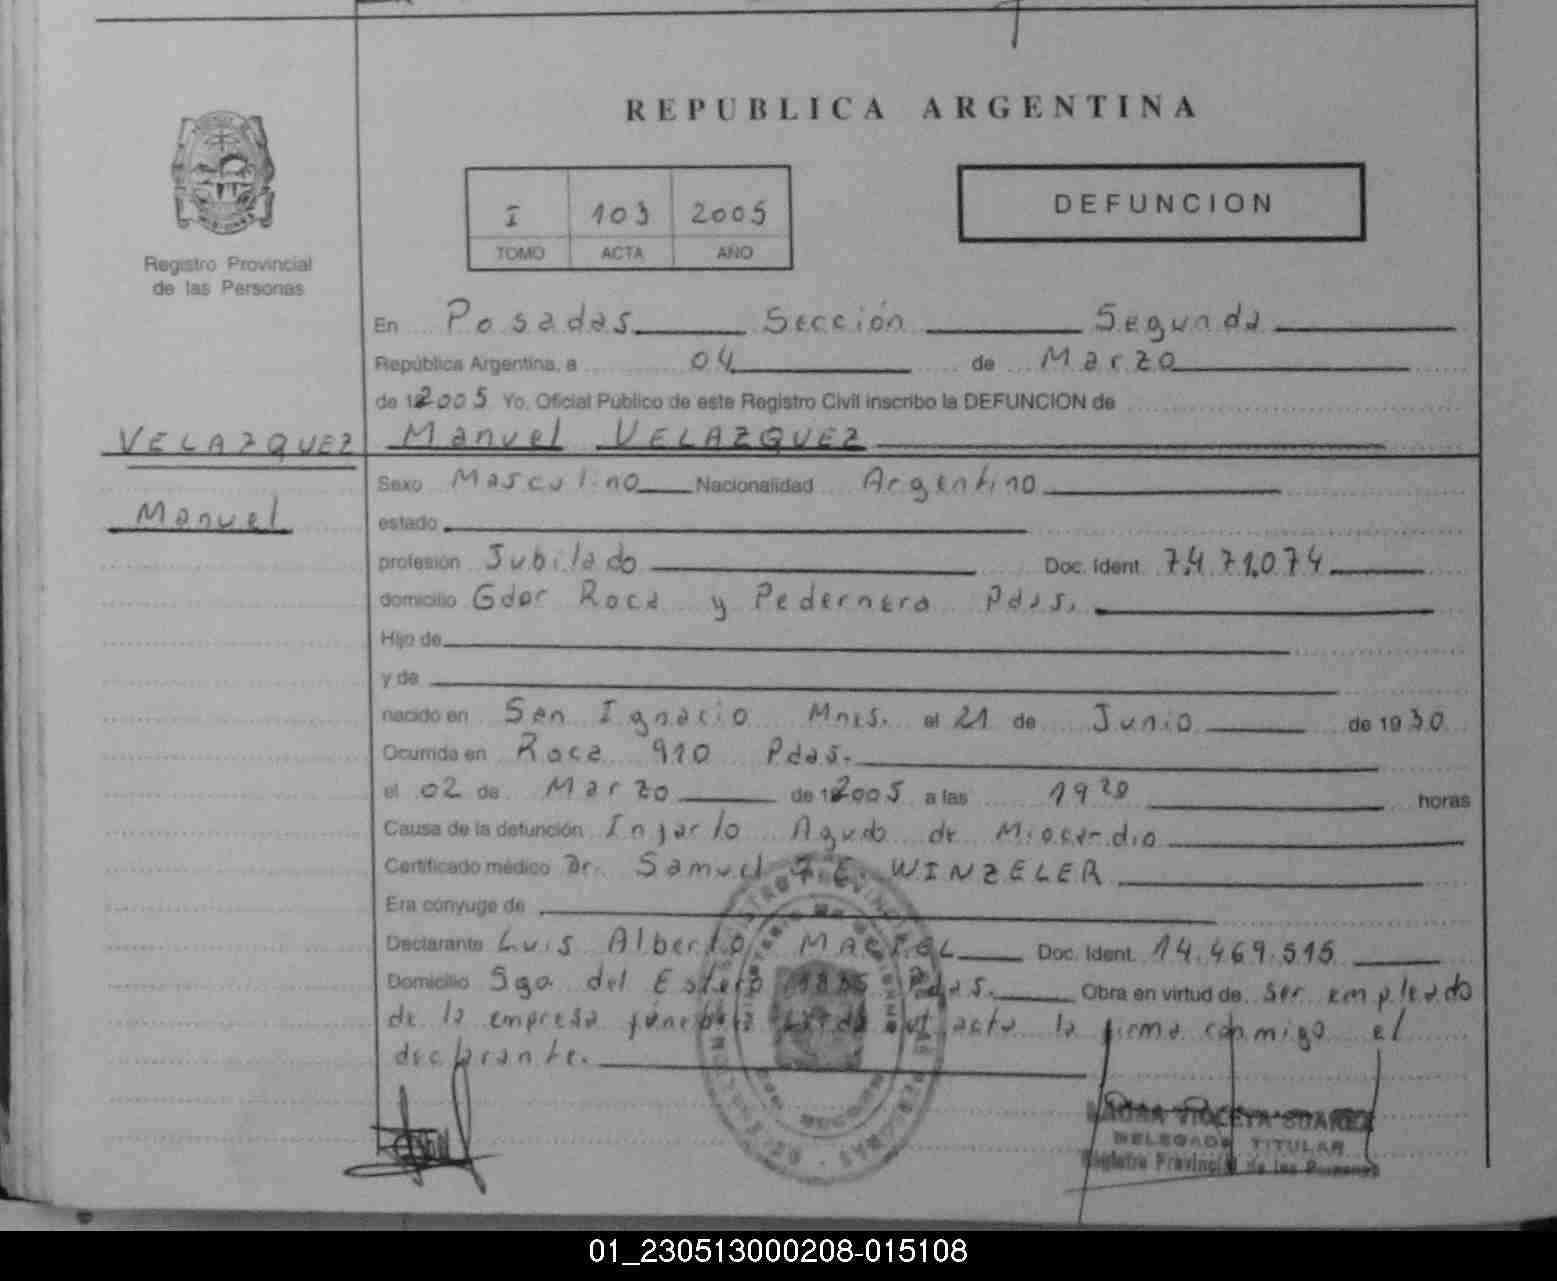 REPUBLICA ARGENTINA
I 103 2005
TOMO ACTA AÑO
DEFUNCION
Registro Provincial
de las Personas
En Posadas Sección Segunda
República Argentina, a 04 de Marzo
de 2005 Yo, Oficial Público de este Registro Civil inscribo la DEFUNCION de
VELAZQUEZ Manuel VELAZQUEZ
Sexo Masculino Nacionalidad Argentino
Manuel
estado
profesión Jubilado Doc. Ident. 7.471.074
domicilio Gdor Roca y Pedernera Pdas.
Hijo de
y de
nacido en San Ignacio Mnes. el 21 de Junio de 1930
Ocurrida en Roca 910 Pdas.
el 02 de Marzo de 2005 a las 19 20 horas
Causa de la defunción Infarto Agudo de Miocardio
Certificado médico Dr. Samuel E. WINZELER
Era cónyuge de
Declarante Luis Alberto MACIEL Doc. Ident. 14.469.515
Domicilio Sgo del Estero Pdas. Obra en virtud de ser empleado
de la empresa fúnebre acta la firma conmigo el
declarante.
LAURA VIOLETA SUAREZ
DELEGADO TITULAR
Registro Provincial de las Personas
01_230513000208-015108